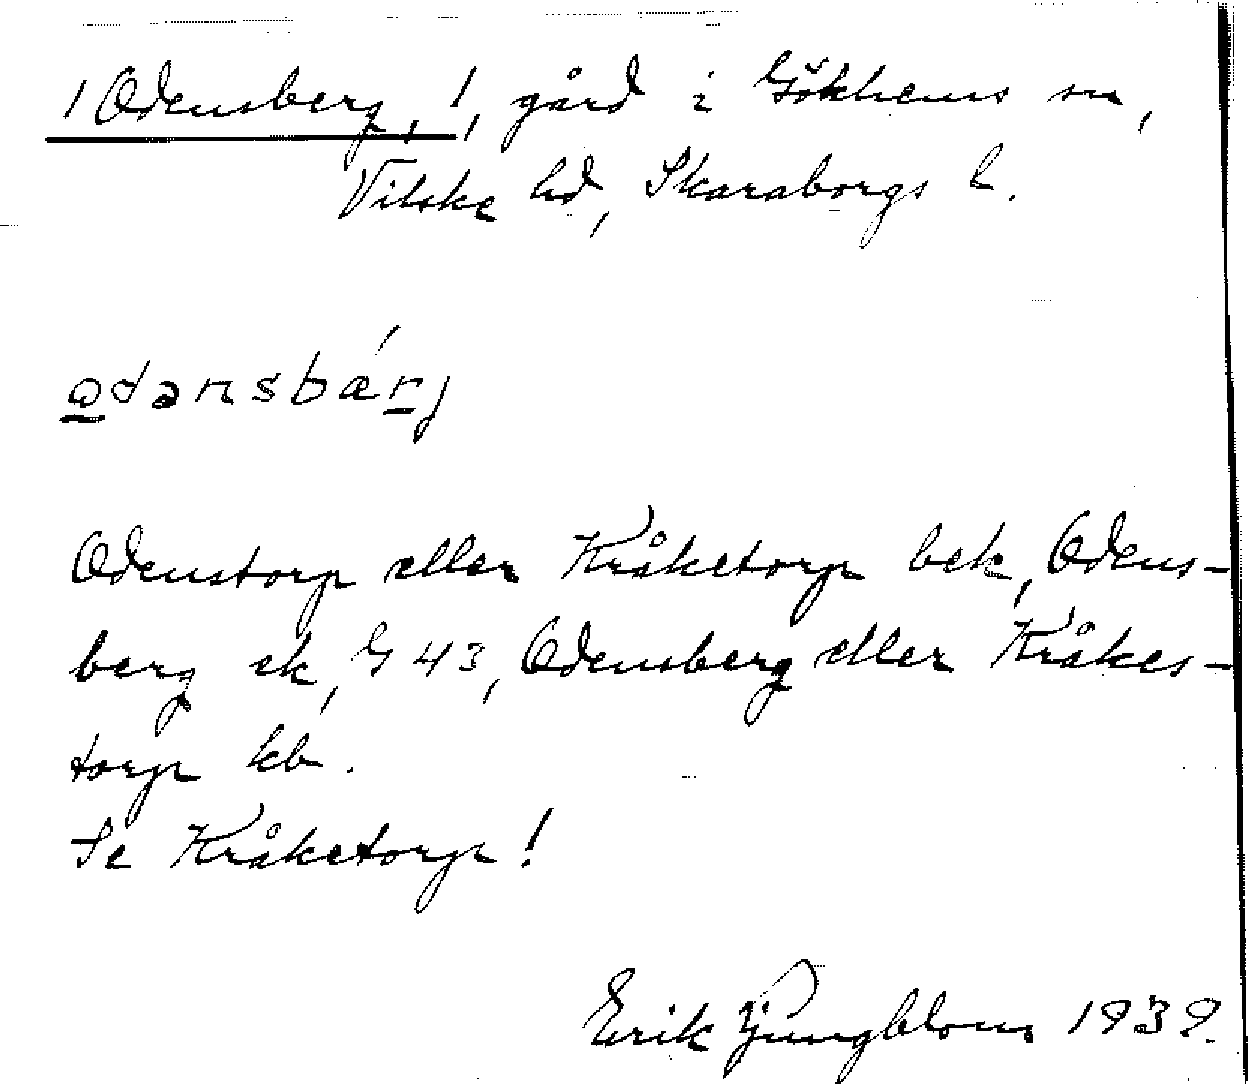 1 Odensberg, 1, gård i Gökhems sn,
Vilske hd, Skaraborgs l.
ωdənsbær̲j
Odenstorp eller Kråketorp bek, Odens-
berg ek, G 43, Odensberg eller Kråkes-
torp kb.
Se Kråketorp!
Erik Ljungblom 1939.